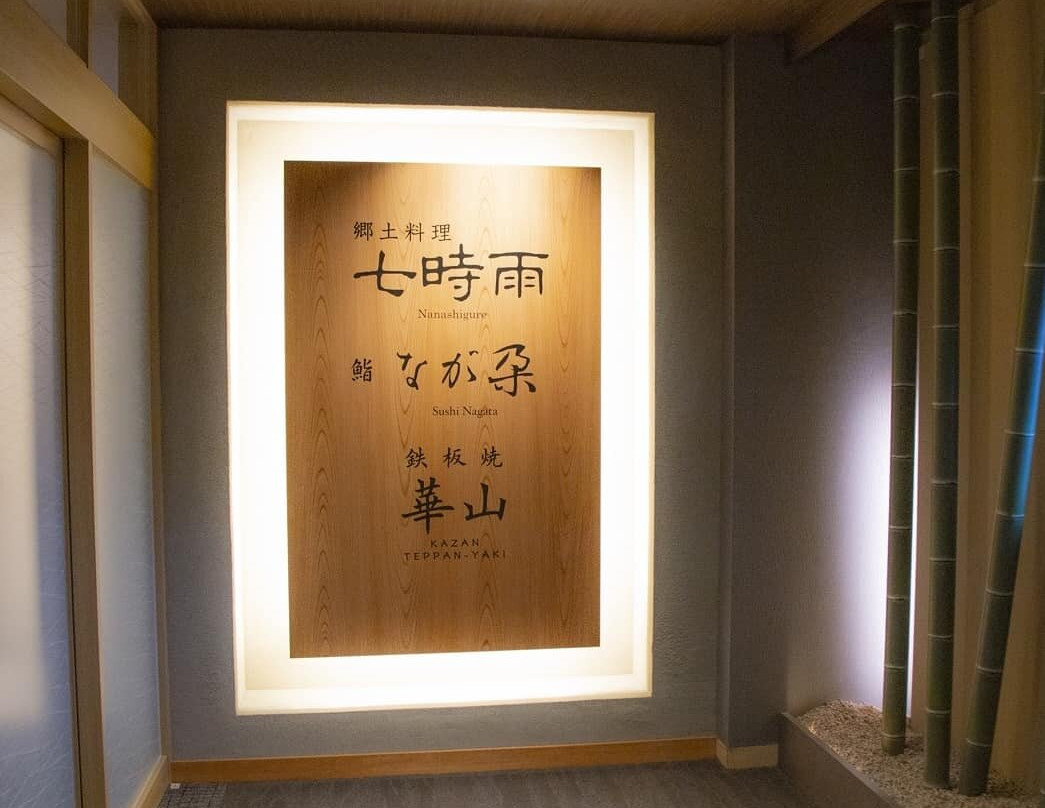 郷土料理
七時雨
Nanashigure
鮨 なが朶
Sushi Nagata
鉄板焼
華山
KAZAN
TEPPAN-YAKI